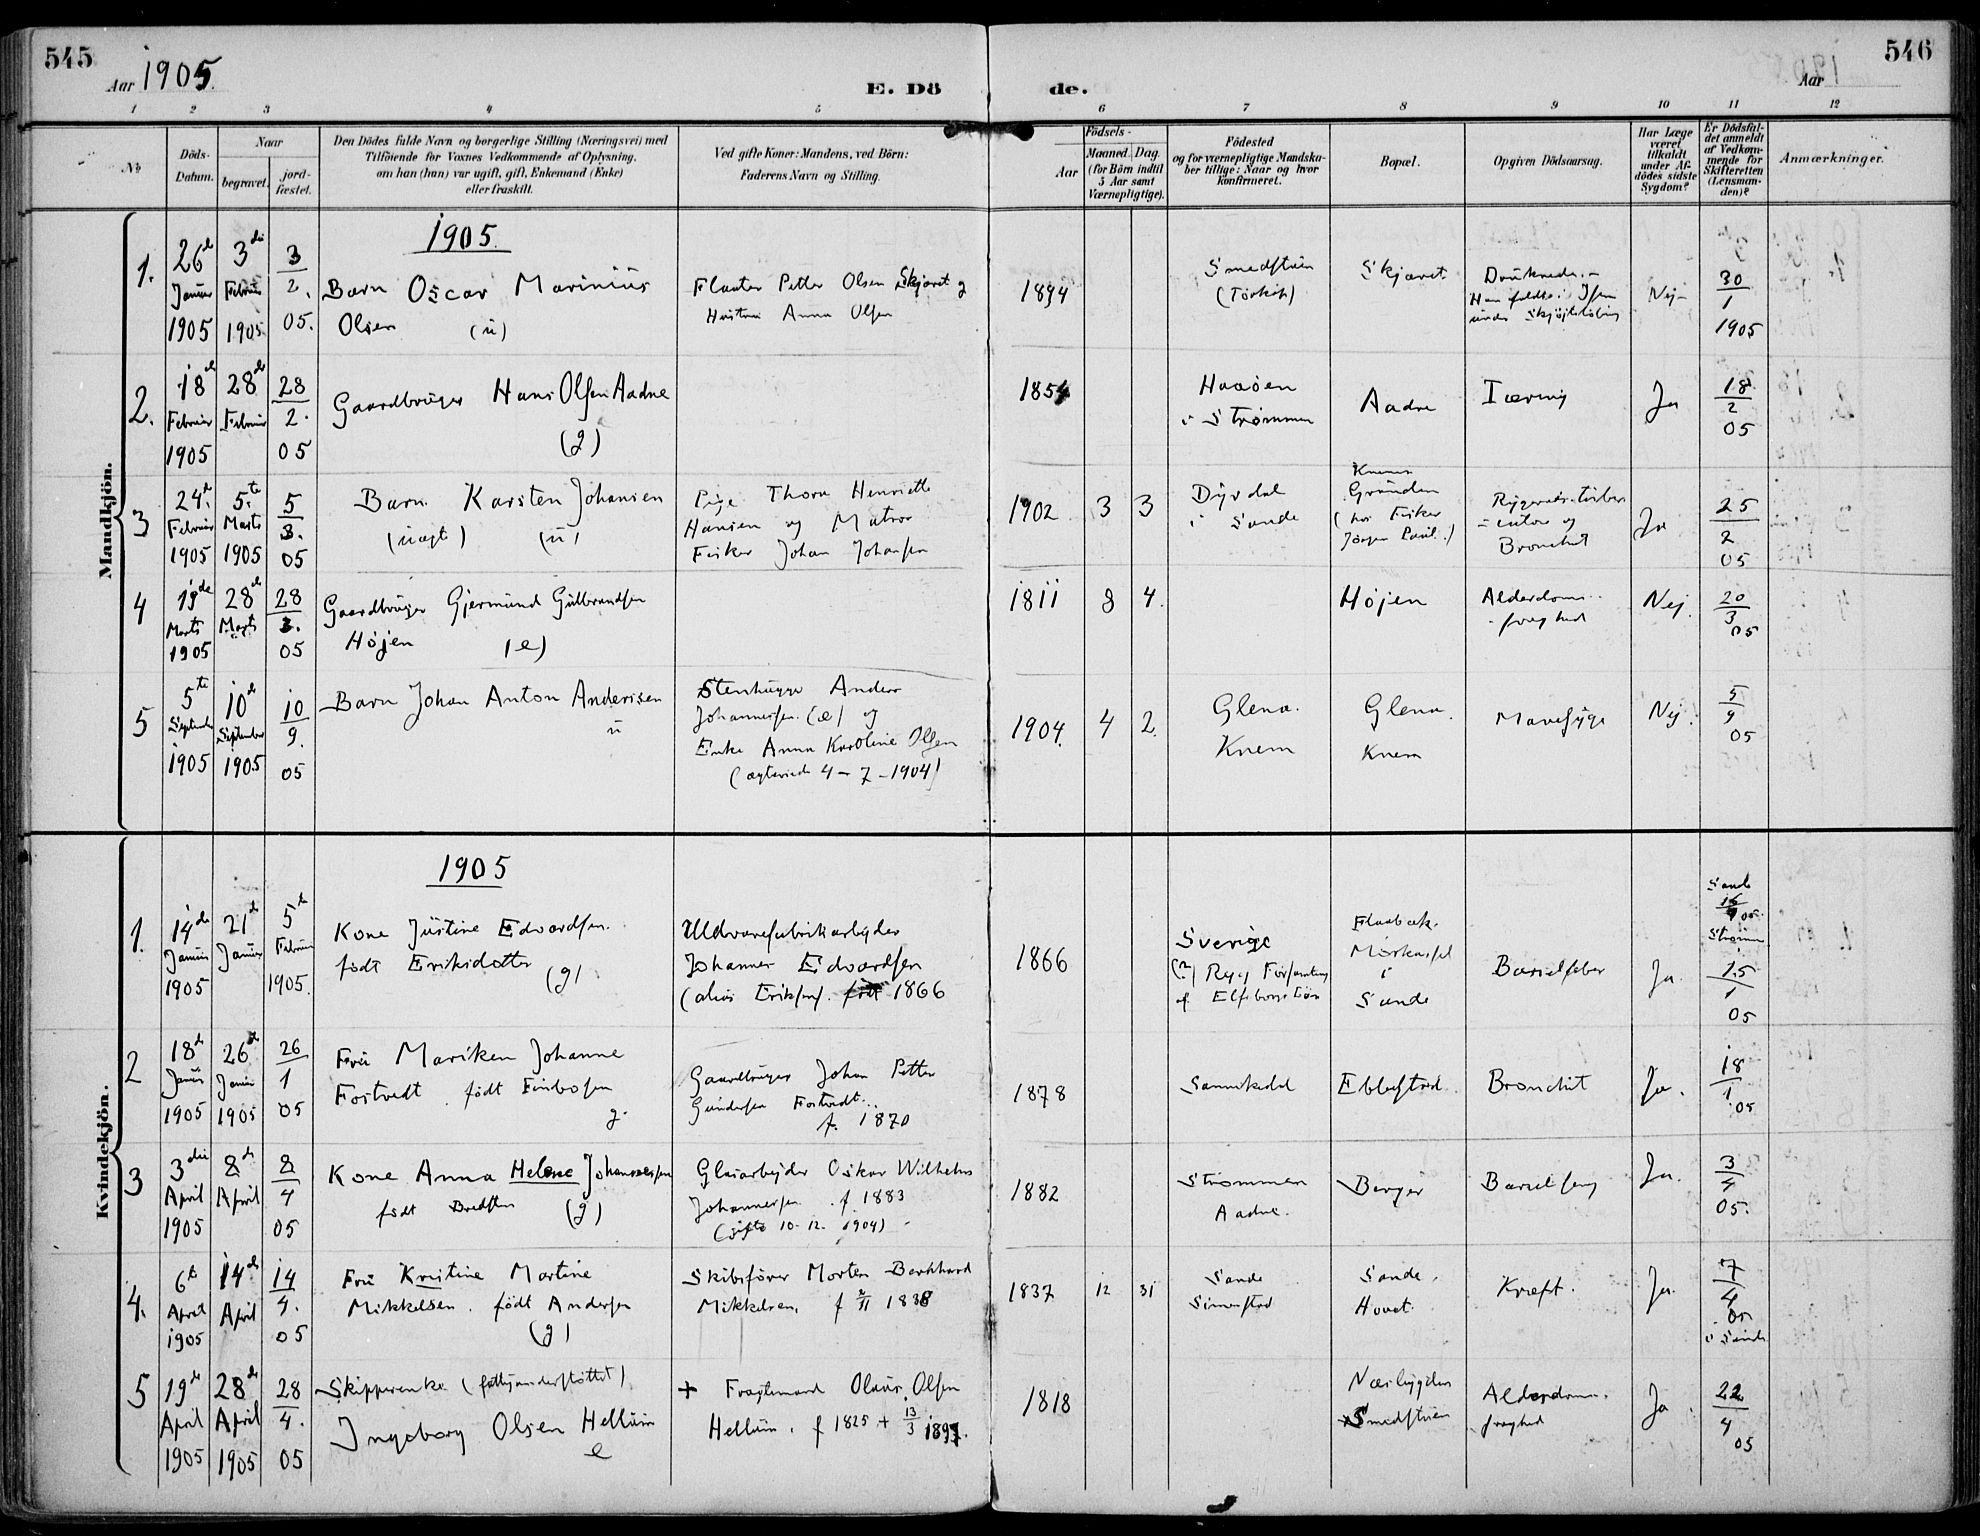 545
546
Aar 1905.
E. Dö de.
Aar
1 2 3 4 5 6 7 8 9 10 11 12
No
Döds-Datum.
Naar
begravet.
jord-fæstet.
Den Dödes fulde Navn og borgerlige Stilling (Næringsvei) med
Tilföiende for Voxnes Vedkommende af Oplysning.
om han (hun) var ugift, gift, Enkemand (Enke)
eller fraskilt.
Ved gifte Koner: Mandens, ved Börn:
Faderens Navn og Stilling.
Födsels-
Aar
Maaned. Dag.
(for Börn indtil
5 Aar samt
Værnepligtige).
Födested
og for værnepligtige Mandska-
ber tillige: Naar og hvor
konfirmeret.
Bopæl.
Opgiven Dödsaarsag.
Har Læge
været
tilkaldt
under Af-
dödes sidste
Sygdom?
Er Dödsfal-
det anmeldt
af Vedkom-
mende for
Skifteretten
(Lensman-
den)?
Anmærkninger.
Mandkjön.
1905
1.
26de Januar 1905
3die Februar 1905
3/2. 05.
Barn Oscar Marinius
Olsen (u)
Fløter Petter Olsen Skjæret og
Hustru Anna Olsen
1894
Smedstuen
Skjæret
Druknede.-
Han faldt i Isen
under
Nej-
30/1 1905
2.
18de Februar 1905
28de Februar
28/2. 05
Gaardbruger Hans Olsen Aadne
(g)
1854
Haaøen
i Strømmen
Aadne
Tæring
Ja
18/2 05
3
24de Februar 1905
5te Marts 1905
5/3. 05
Barn Karsten Johansen
(uægt) (u)
Pige Thora Henriette
Hansen og Matros
Fisker Johan Johansen
1902 3 3
Dyrdal
i Sande
Knemm
Grunden
(hos Fisker
Jørgen Paul.)
og
Bronchit
Ja
25/2 05
4
19de Marts 1905
28de Marts
28/3. 05
Gaardbruger Gjermund Gulbrandsen
Højen (e)
1811 8 4.
Højen
Alderdoms-
svaghed
Nej.
20/3 05
5
5te September 1905
10de September 1905
10/9. 05
Barn Johan Anton Anderssen
u
Stenhugger Anders
Johannessen (e) og
Enke Anna Karoline Olsen
(ægteviede 4-7-1904)
1904. 4 2.
Glena.
Knem
Glena.
Knem
Mavesyge
Nej.
5/9 05
Kvindekjön.
1905
1.
14de Januar 1905
21de Januar
5te Februar 1905.
Kone Justine Edvardsen.
født Eriksdatter (g)
Uldvarefabrikarbejder
Johannes Edvardsen
(alias Eriksen). født 1866
1866
Sverige
(?) Ryg Forsamling
af Elfsborgs Län
Flaabæk.
i
Sande
Barselfeber
Ja.
Sande
Strømm
15/1 05
2
18de Januar 1905
26de Januar 1905
26/1 05
Fru Mariken Johanne
Fostvedt født Findbosen
g.
Gaardbruger Johan Petter
Gundersen Fostvedt.
f. 1870
1878
Sannikedal
Ebbestad
Bronchit
Ja.
18/1 05
3
3die April 1905
8de April
8/4 05
Kone Anna Helene Johannessen
født Bredsten (g)
Glasarbejder Oskar Wilhelm
Johannessen f. 1883
(gifte 10-12. 1904)
1882
Strømmen
Aadne.
Berger
Barselseng
Ja.
3/4 05.
4.
6te April 1905
14de April
14/4. 05
Fru Kristine Martine
Mikkelsen. født Andersen
(g)
Skibsfører Morten Barkhard
Mikkelsen, f 2/11 1838
1837 12 31
Sande
Sande.
Hovet.
Kræft.
Ja.
7/4 05
i Sande
5
19de April 1905
28de April 1905
28/4. 05
Skipperenke (fattigunderstøttet)
Ingeborg Olsen Hellum
e
+ Fragtemand Olaus Olsen
Hellum. f 1825 + 13/3 1897.
1818
Nærbygden
Smedstuen
Alderdoms.
svaghed
Ja.
22/4 05